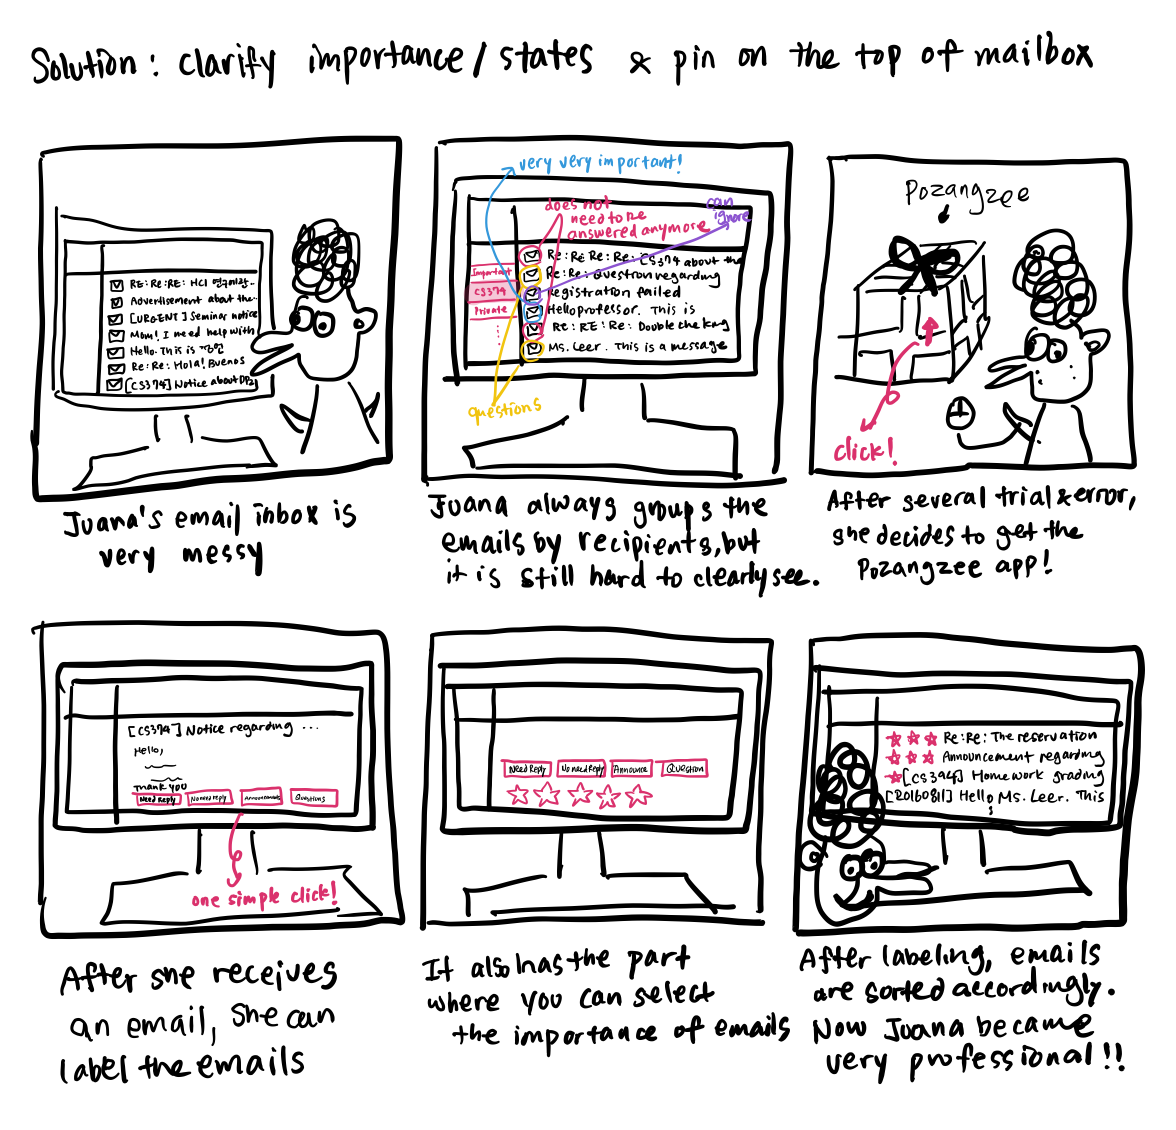 Solution: clarify importance/states & pin on the top of mailbox
Re: Re: RE: HCI 연구미팅..
Advertisement about the..
[URGENT] Seminar notice
Mom! I need help with
Hello. This is
Re: Re: Hola! Buenos
[CS374] Notice about DP3
Juana's email inbox is
very messy
very very important!
does not
need to be
answered anymore
can
ignore
Important
CS374
Private
Re: Re: Re: Re: CS374 about the
Re: Re: Question regarding
Registration failed
Hello professor. This is
Re: RE: Re: Double checking
Ms. Leer. This is a message
questions
Juana always groups the
emails by recipients, but
it is still hard to clearly see.
Pozangzee
click!
After several trial & error,
she decides to get the
Pozangzee app!
[CS374] Notice regarding ...
Hello,
Thank you
Need Reply
No need Reply
Announcement
Questions
one simple click!
After she receives
an email, she can
label the emails
Need Reply
No need Reply
Announce
Question
It also has the part
where you can select
the importance of emails
Re: Re: The reservation
Announcement regarding
[CS394] Homework grading
[20160811] Hello Ms. Leer. This
After labeling, emails
are sorted accordingly.
Now Juana became
very professional!!